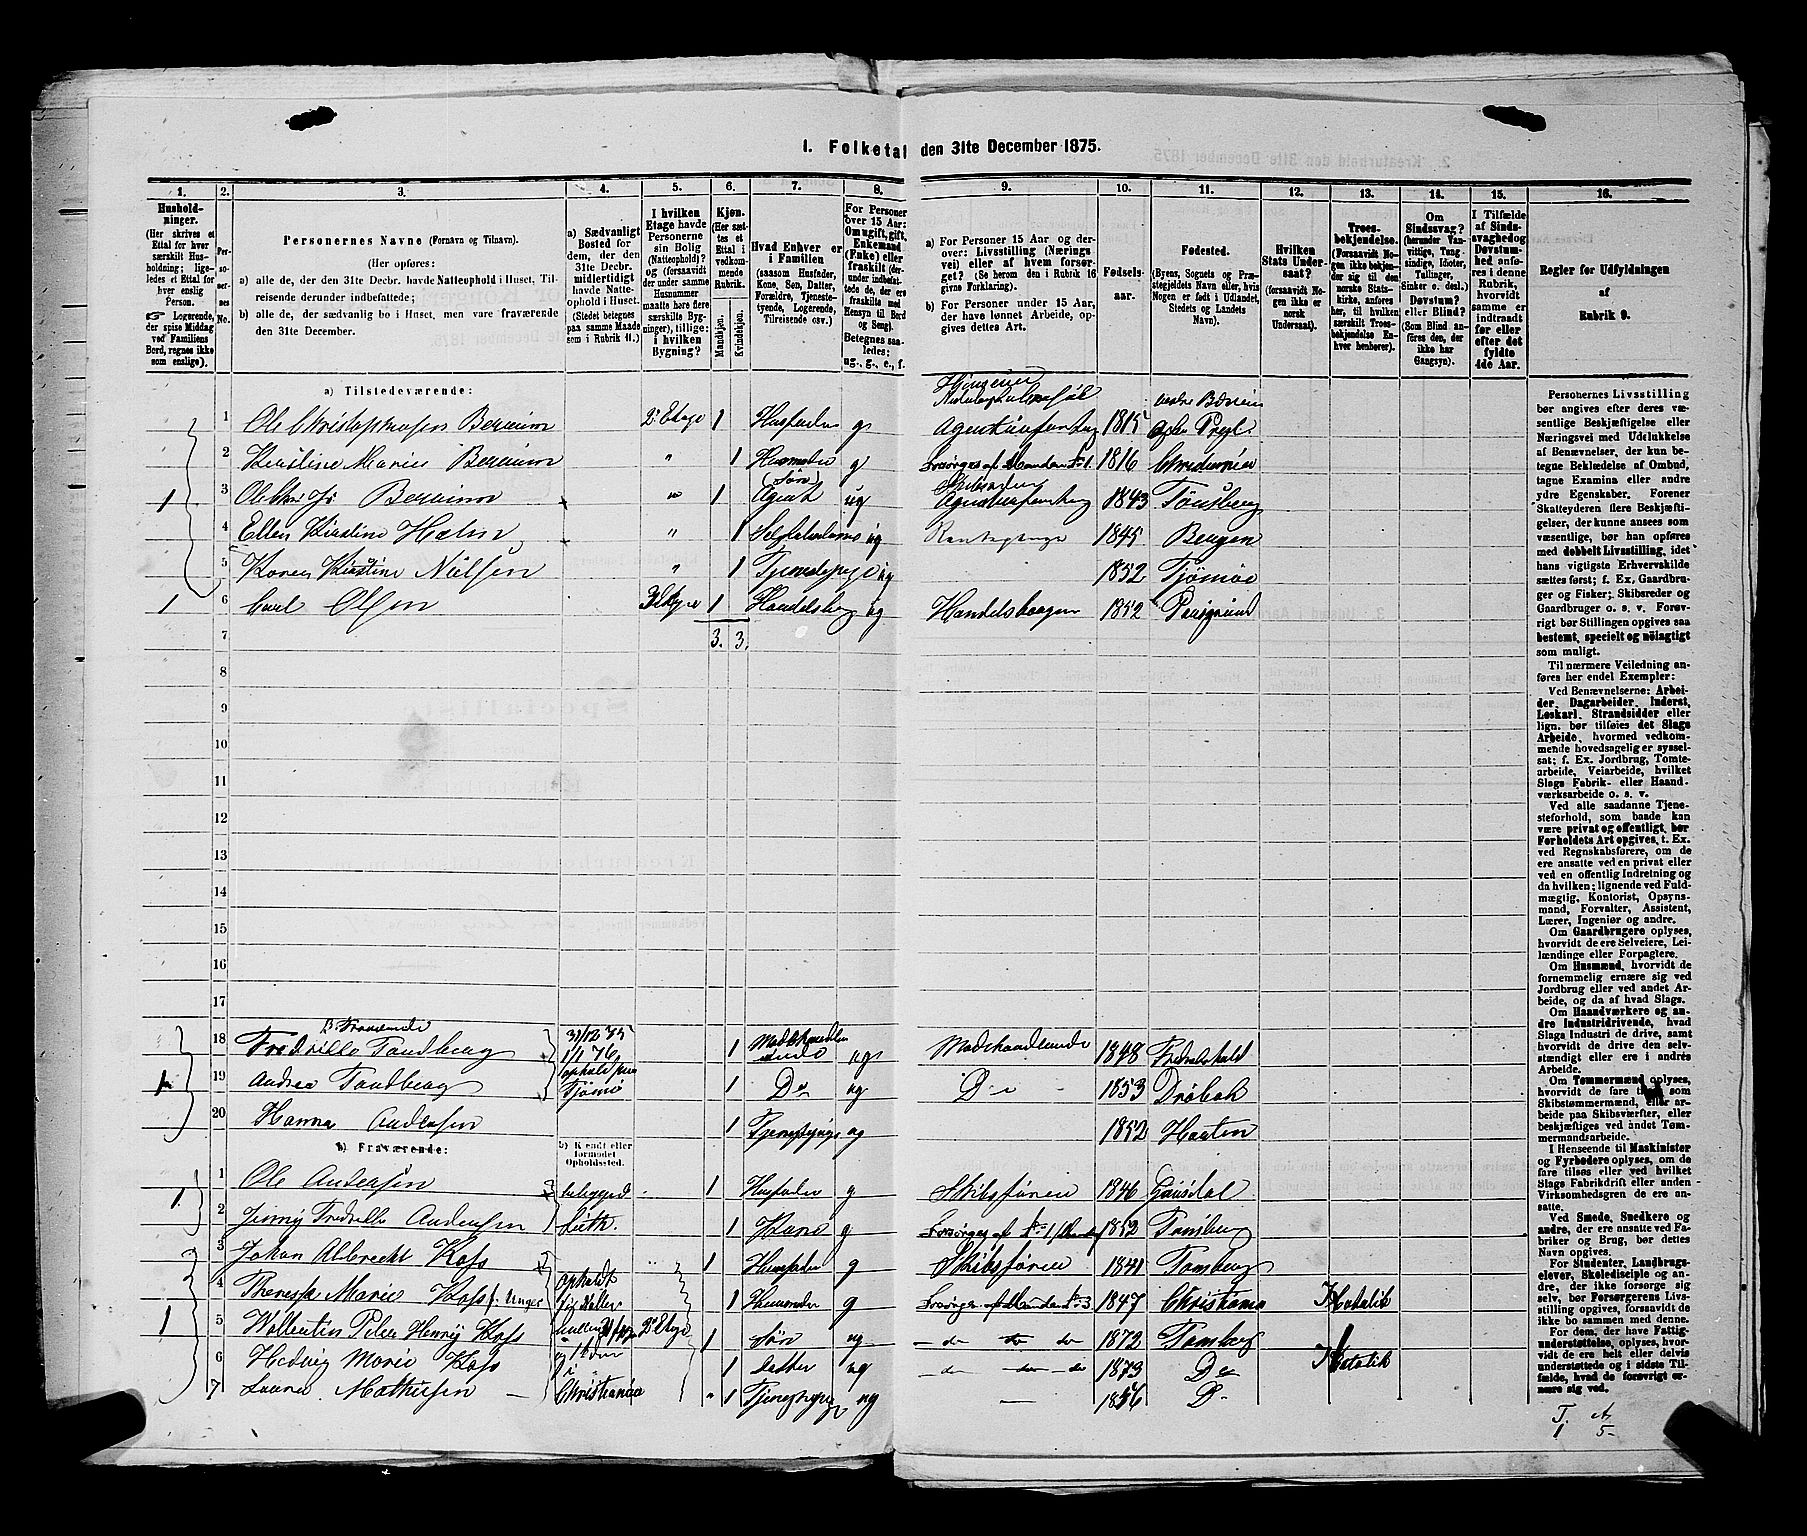 I. Folketal den 31te December 1875.
1. 2. 3. 4. 5. 6. 7. 8. 9. 10. 11. 12. 13. 14. 15. 16.
Husholdninger.
(Her skrives et
Ettal for hver
særskilt Husholdning;
ligeledes et Ettal for
hver enslig
Person.
☞ Logerende,
der spise Middag
ved Familiens
Bord, regnes ikke
som enslige).
Personernes No.
Personernes Navne (Fornavn og Tilnavn).
(Her opføres:
a) alle de, der den 31te Decbr. havde Natteophold i Huset, Tilreisende derunder indbefattede;
b) alle de, der sædvanlig bo i Huset, men vare fraværende den 31te December.
a) Sædvanligt
Bosted for
dem, der den
31te Decbr.
midlertidigt
havde Natteophold i Huset.
(Stedet betegnes
paa samme Maade
som i Rubrik 11.)
I hvilken
Etage havde
Personerne
sin Bolig
(Natteophold)?
og (forsaavidt
der under samme
Husnummer
maatte høre flere
særskilte Bygninger), tillige:
i hvilken
Bygning?
Kjøn.
(Her sættes et
Ettal i
vedkommende
Rubrik.
Mandkjøn.
Kvindekjøn.
Hvad Enhver er
i Familien
(saasom Husfader,
Kone, Søn, Datter,
Forældre, Tjenestetyende, Logerende,
Tilreisende osv.)
For Personer
over 15 Aar:
Om ugift, gift,
Enkemand
(Enke) eller
fraskilt
Betegnes saaledes:
ug., g., e., f.
a) For Personer 15 Aar og derover: Livsstilling (Næringsvei) eller af hvem forsørget? (Se herom den i Rubrik 16
givne Forklaring).
b) For Personer under 15 Aar,
der have lønnet Arbeide, opgives dettes Art.
Fødselsaar.
Fødested.
(Byens, Sognets og Præstegjeldets Navn eller, hvis
Nogen er født i Udlandet,
Stedets og Landets
Navn).
Hvilken
Stats Undersaat?
(forsaavidt Nogen ikke er
norsk
Undersaat).
Troesbekjendelse.
(Forsaavidt Nogen ikke bekjender sig til den
norske Statskirke, anføres
her, til hvilken
særskilt Troesbekjendelse Enhver henhører).
Om
Sindssvag?
(herunder Vanvittige, Tungsindige, Idioter,
Tullinger,
Sinker o. desl.)
Døvstum?
eller Blind?
(Som Blind anføres den, der
ikke har
Gangsyn).
I Tilfælde
af Sindssvaghed og
Døvstumhed anføres i denne
Rubrik,
hvorvidt
samme er
indtraadt
før eller
efter det
fyldte
4de Aar.
Regler for Udfyldningen
af
Rubrik 9.
a) Tilstedeværende:
1 Ole Christophersen Bereium 2. Etage 1 Husfader g Agentur 1815
2 Kirstine Marie Bereium " 1 Husmoder g Forsørges af Manden No 1. 1816 Christiania
1 3 Ole Chr Jr Bereium " 1 Søn Agent ug 1843 Tønsberg
4 Ellen Kirstine Holm " 1 ug 1845 Bergen
5 Karen Kirstine Nielsen " 1 Tjenestepige ug 1852 Tjømø
1 6 Carl Olsen 1 Handelsb. ug Handelsbogen 1852
7 3. 3.
8
9
10
11
12
13
14
15
16
17
18 Fredrikke Tandberg 31/12 75 1/1 76 1 Modehandlerinde ug Modehandlende 1848 Fredrikshald
1 19 Andrea Tandberg Tjømø 1 Do ug Do 1853 Drøbak
20 Hanna Andersen 1 Tjenestepige ug 1852 Horten
b) Fraværende: b) Kjendt eller
formodet
Opholdssted.
1 1 Ole Andersen 1 Husfader g Skibsfører 1846 Gausdal
2 Jenny Fredrikke Andersen 1 Kone g Forsørges af No 1 1852 Tønsberg
3 Johan Albrecht Koss 1 Husfader g Skibsfører 1841 Tønsberg
4 Theresa Marie Koss f. Unger 1 Husmoder g Forsørges af Manden No 3 1847 Christiania Katolik
1 5 Wallentin Peter Henry Koss 2. Etage 1 Søn ug do do do 1872 Tønsberg
6 Hedvig Marie Koss 1 Datter ug do do do 1873 Do Katolik
7 Laura Mathisen Christiania " 1 Tjenestepige ug 1856 D
Personernes Livsstilling
bør angives efter deres væsentlige Beskjæftigelse eller
Næringsvei med Udelukkelse
af Benævnelser, der kun betegne Bekledelse af Ombud,
tagne Examina eller andre
ydre Egenskaber. Forener
Skatteyderen flere Beskjæftigelser, der kunne ansees som
væsentlige, bør han opføres
med dobbelt Livsstilling, idet
hans vigtigste Erhvervskilde
sættes først; f. Ex. Gaardbruger og Fisker; Skibsreder og
Gaardbruger o. s. v. Forøvrigt bør Stillingen opgives saa
bestemt, specielt og nöiagtigt
som muligt.
Til nærmere Veiledning anføres her endel Exempler:
Ved Benævnelserne: Arbeider, Dagarbeider, Inderst,
Løskarl, Strandsidder eller
lign. bør tilføies det Slags
Arbeide, hvormed vedkommende hovedsagelig er sysselsat; f. Ex. Jordbrug, Tomtearbeide, Veiarbeide, hvilket
Slags Fabrik- eller Haandværksarbeide o. s. v.
Ved alle saadanne Tjenesteforhold, som baade kan
være privat og offentligt, bør
Forholdets Art opgives, t. Ex.
ved Regnskabsførere, om de
ere ansatte ved en privat eller
ved en offentlig Indretning og
da hvilken; lignende ved Fuldmægtig, Kontorist, Opsynsmand, Forvalter, Assistent,
Lærer, Ingeniør og andre.
Om Gaardbrugere oplyses,
hvorvidt de ere Selveiere, Leilændinge eller Forpagtere.
Om Husmænd, hvorvidt de
fornemmelig ernære sig ved
Jordbrug eller ved andet Arbeide, og da af hvad Slags.
Om Haandværkere og andre Industridrivende, hvad
Slags Industri de drive, samt
hvorvidt de drive den selvstændigt eller ere i andres
Arbeide.
Om Tømmermænd oplyses,
hvorvidt de fare til søs som
Skibstømmermænd, eller arbeide paa Skibsværfter, eller
beskjæftiges ved andet Tømmermandsarbeide.
I Henseende til Maskinister
og Fyrbødere oplyses, om de
fare tilsøs eller ved hvilket
Slags Fabrikdrift eller anden
Virksomhedsgren de ere ansatte.
Ved Smede, Snedkere og
andre, der ere ansatte ved Fabriker og Brug, bør dettes
Navn opgives.
For Studenter, Landbrugselever, Skoledisciple og andre, der ikke forsørge sig
selv, bør Forsørgerens Livsstilling opgives, forsaavidt de
ikke bo sammen med denne.
For dem, der have Fattigunderstøttelse, oplyses, hvorvidt de ere helt eller delvis
understøttede og i sidste Tilfælde, hvad de forøvrigt ernære sig ved.
T. A
1 5